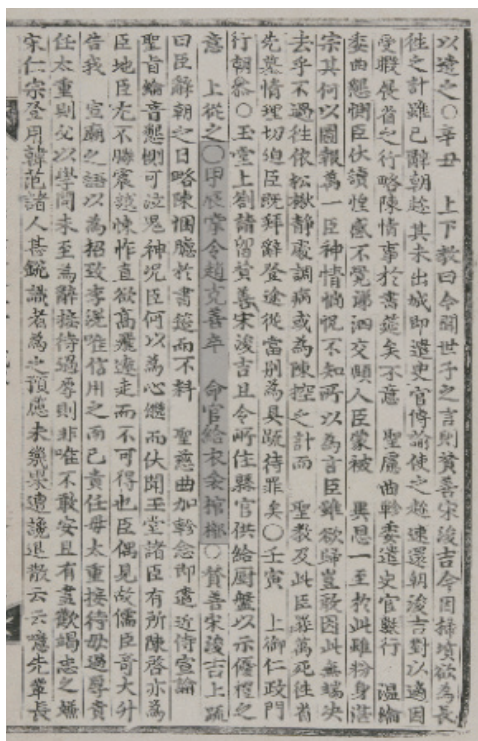 以遣之○辛丑 上下敎曰今聞世子之言則贊善宋浚吉今因掃墳欲爲長
徃之計雖已辭朝趁其未出城卽遣史官傳諭使之趁速還朝浚吉對以適因
受暇展省之行略陳情事於書筵矣不意 聖慮曲軫委遣史官縣行 溫綸
委曲懇惻臣伏讀惶感不覺涕泗交頤人臣蒙被 異恩一至於此雖粉身湛
宗其何以圖報萬一臣神情惝怳不知所以爲言臣雖欲歸豈敢因此無端決
去乎不過徃依松楸靜處調病或爲陳控之計而 聖敎及此臣罪萬死徃省
先墓情理切迫臣旣拜辭登途從當別爲具疏待罪矣○壬寅 上御仁政門
行朝參○玉堂上箚請留贊善宋浚吉且令所住縣官供給廚盤以示優禮之
意 上從之○甲辰掌令趙克善卒 命官給衣衾棺槨○贊善宋浚吉上疏
曰臣辭朝之日略陳悃愊於書筵而不料 聖慈曲加軫念卽遣近侍宣諭
聖旨綸音懇惻可泣鬼神況臣何以爲心繼而伏聞玉堂諸臣有所陳啓亦爲
臣地臣尤不勝震越悚怍直欲高飛遠走而不可得也臣偶見故儒臣奇大升
告我 宣廟之語以爲招致李滉唯信用之而已責任毋太重接待毋過厚責
任太重則必以學問未至爲辭接待過厚則非唯不敢安且有盡歡竭忠之嫌
宋仁宗登用韓范諸人甚銳識者爲之預慮未幾果遭讒退散云云噫先輩長